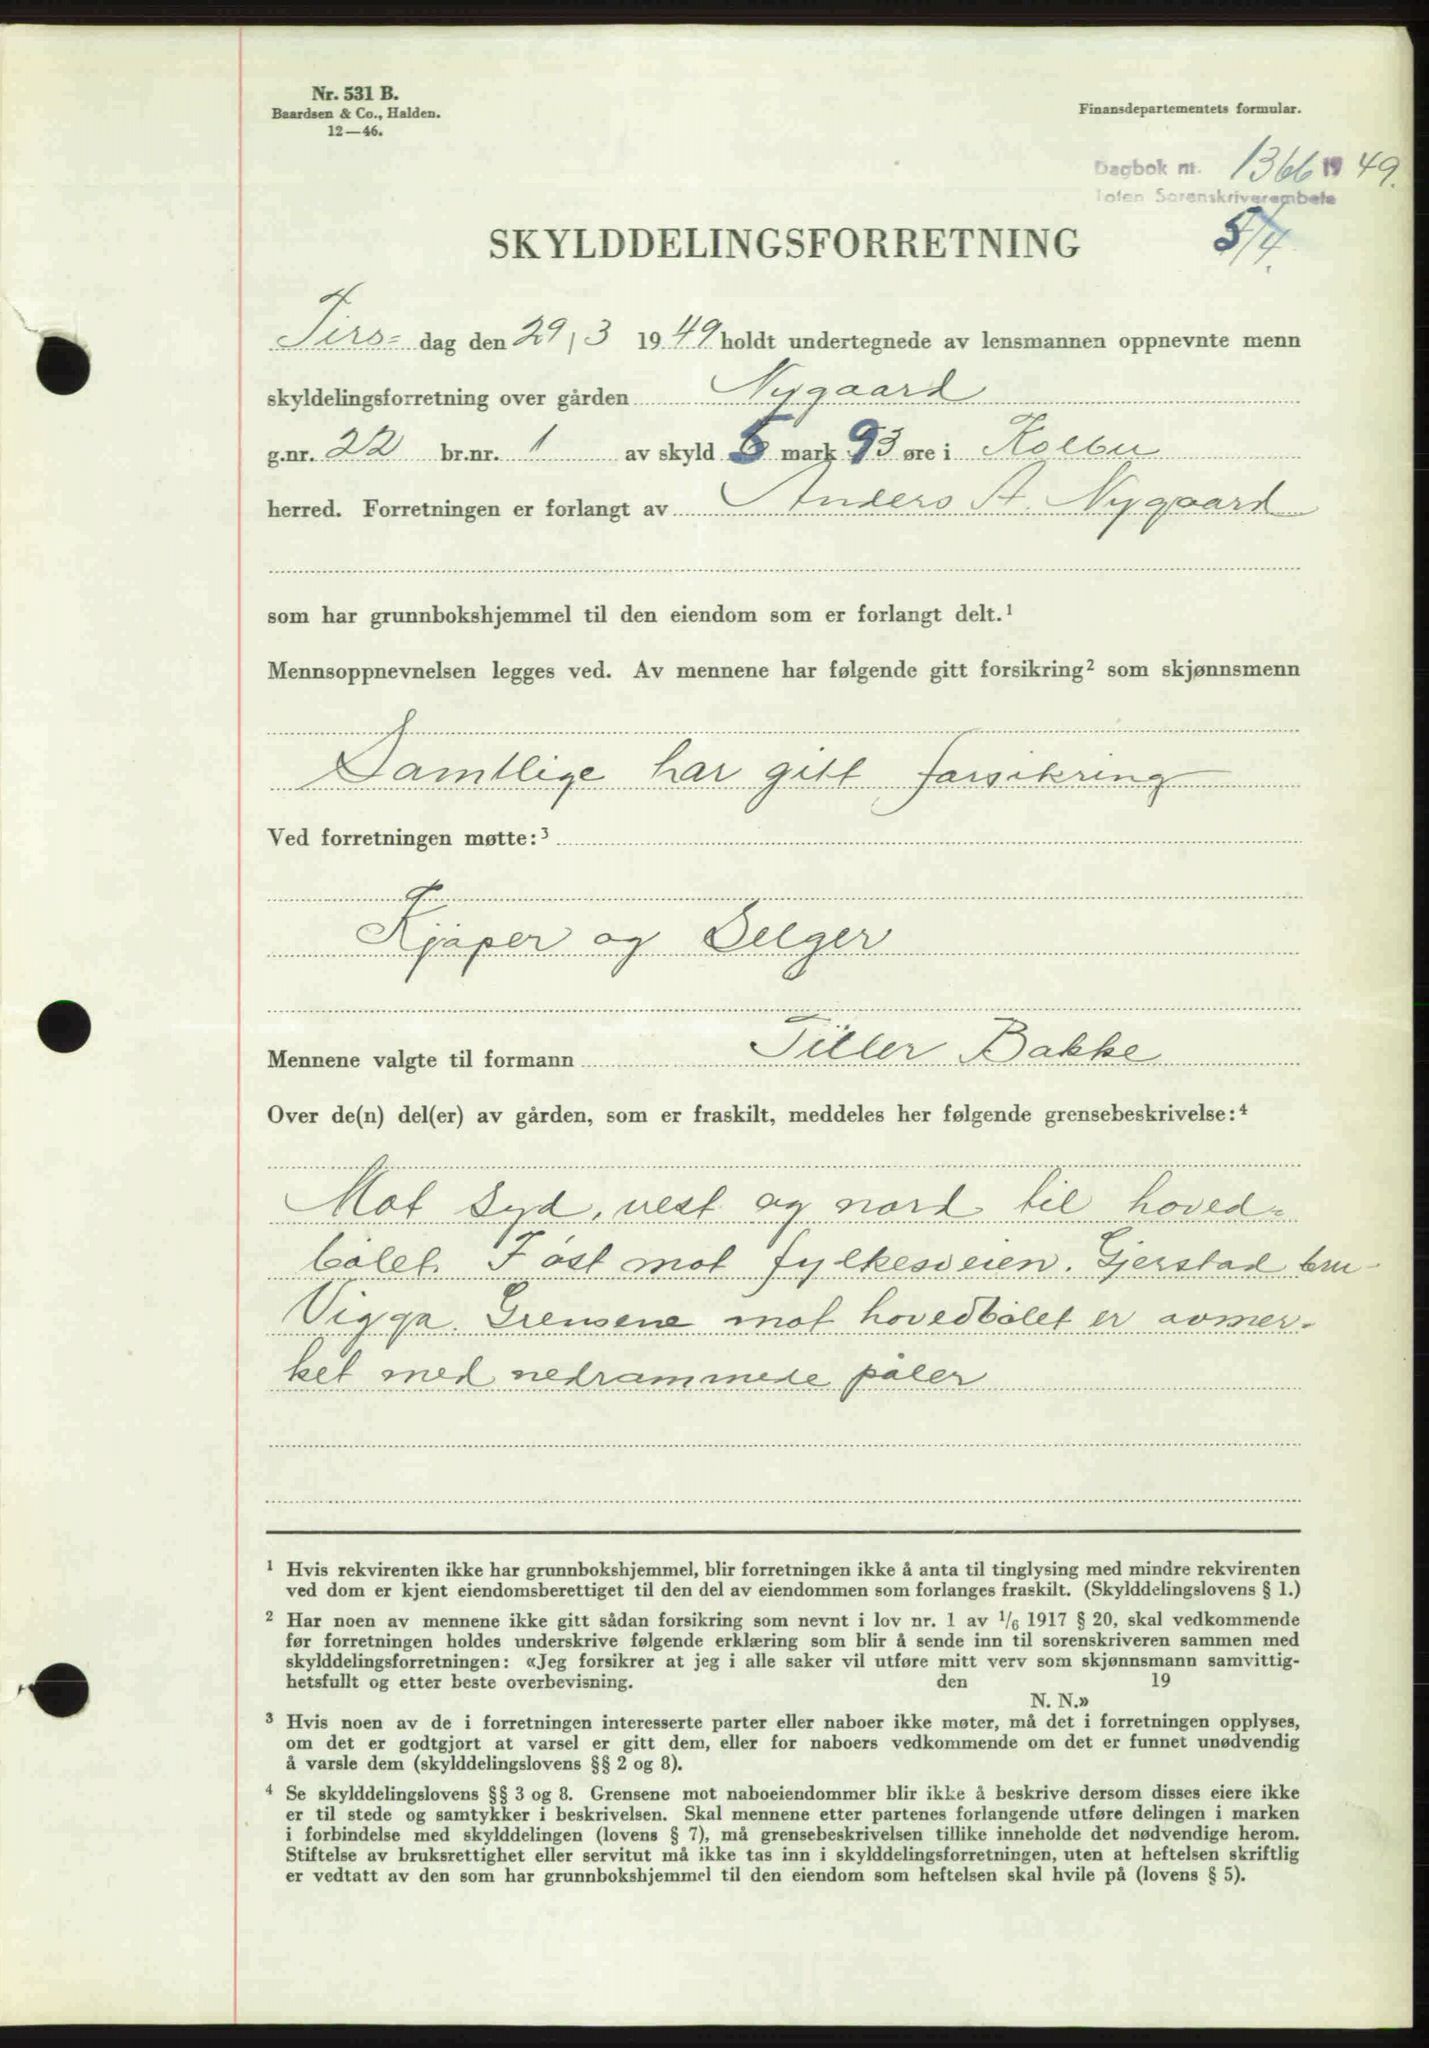 Nr. 531 B.
Baardsen & Co., Halden.
12—46.
Finansdepartementets formular.
Dagbok nr. 1366 19 49.
Toten Sorenskriverembete
5/4.
SKYLDDELINGSFORRETNING
Tirs= dag den 29/3 1949 holdt undertegnede av lensmannen oppnevnte menn
skyldelingsforretning over gården Nygaard
g.nr. 22 br.nr. 1 av skyld 5 mark 93 øre i Kolbu
herred. Forretningen er forlangt av Anders A. Nygaard
som har grunnbokshjemmel til den eiendom som er forlangt delt.¹
Mennsoppnevnelsen legges ved. Av mennene har følgende gitt forsikring² som skjønnsmenn
Samtlige har gitt forsikring
Ved forretningen møtte:³
Kjøper og Selger
Mennene valgte til formann Tiller Bakke
Over de(n) del(er) av gården, som er fraskilt, meddeles her følgende grensebeskrivelse:⁴
Mot syd, vest og nord til hoved=
bølet. I øst mot fylkesveien. Gjerstad bru-
Vigga. Grensene mot hovedbølet er avmer-
ket med nedrammede påler
¹ Hvis rekvirenten ikke har grunnbokshjemmel, blir forretningen ikke å anta til tinglysing med mindre rekvirenten
ved dom er kjent eiendomsberettiget til den del av eiendommen som forlanges fraskilt. (Skylddelingslovens § 1.)
² Har noen av mennene ikke gitt sådan forsikring som nevnt i lov nr. 1 av 1/6 1917 § 20, skal vedkommende
før forretningen holdes underskrive følgende erklæring som blir å sende inn til sorenskriveren sammen med
skylddelingsforretningen: «Jeg forsikrer at jeg i alle saker vil utføre mitt verv som skjønnsmann samvittig-
hetsfullt og etter beste overbevisning. den 19
N. N.»
³ Hvis noen av de i forretningen interesserte parter eller naboer ikke møter, må det i forretningen opplyses,
om det er godtgjort at varsel er gitt dem, eller for naboers vedkommende om det er funnet unødvendig
å varsle dem (skylddelingslovens §§ 2 og 8).
⁴ Se skylddelingslovens §§ 3 og 8. Grensene mot naboeiendommer blir ikke å beskrive dersom disses eiere ikke
er til stede og samtykker i beskrivelsen. Skal mennene etter partenes forlangende utføre delingen i marken
i forbindelse med skylddelingen (lovens § 7), må grensebeskrivelsen tillike inneholde det nødvendige herom.
Stiftelse av bruksrettighet eller servitut må ikke tas inn i skylddelingsforretningen, uten at heftelsen skriftlig
er vedtatt av den som har grunnbokshjemmel til den eiendom som heftelsen skal hvile på (lovens § 5).